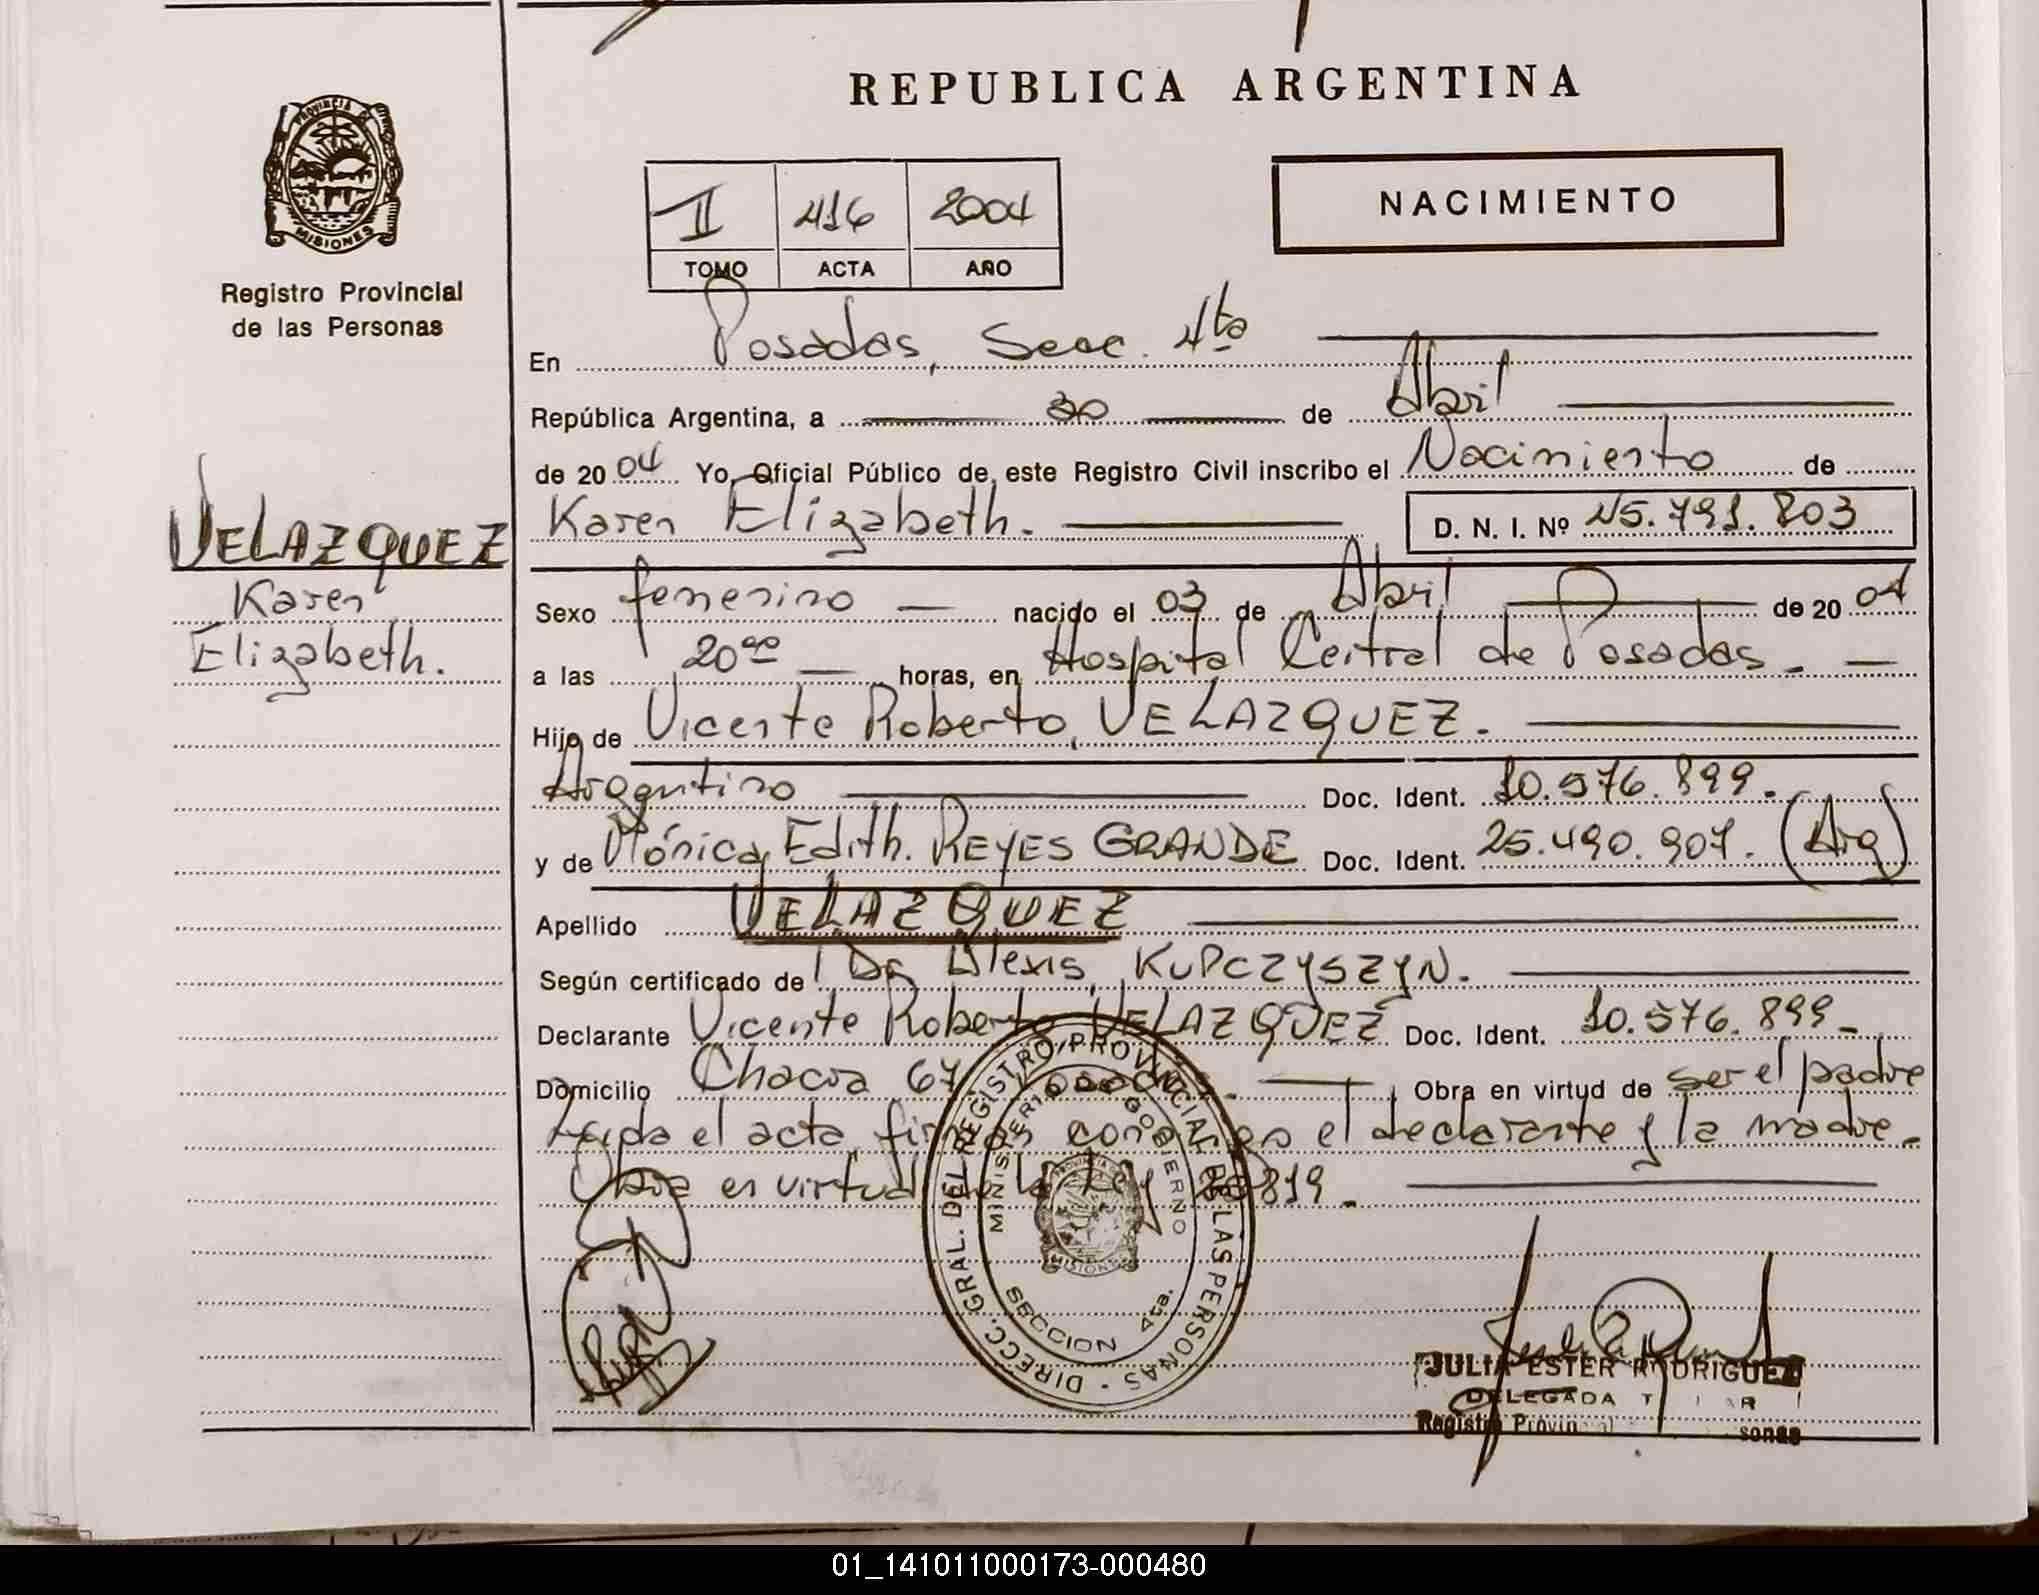 REPUBLICA ARGENTINA
PROVINCIA DE
MISIONES
Registro Provincial
de las Personas
II 416 2004
TOMO ACTA AÑO
NACIMIENTO
En Posadas, Secc. 4ta
República Argentina, a 30 de Abril
de 2004 Yo, Oficial Público de este Registro Civil inscribo el Nacimiento de
Karen Elizabeth. D. N. I. Nº 45.791.803
VELAZQUEZ
Karen
Elizabeth.
Sexo femenino nacido el 03 de Abril de 2004
a las 20⁰⁰ horas, en Hospital Central de Posadas.
Hijo de Vicente Roberto, VELAZQUEZ.
Argentino Doc. Ident. 10.576.899.
y de Mónica Edith. REYES GRANDE Doc. Ident. 25.490.907. (Arg)
Apellido VELAZQUEZ
Según certificado de Dr. Alexis, KUPCZYSZYN.
Declarante Vicente Roberto VELAZQUEZ Doc. Ident. 10.576.899
Domicilio Chacra 67 Posadas. Obra en virtud de ser el padre
Leída el acta, firman conmigo el declarante y la madre.
Obra en virtud de la Ley 819.
DIRECC. GRAL. DEL REGISTRO PROVINCIAL DE LAS PERSONAS
MINISTERIO DE GOBIERNO
PROVINCIA DE
MISIONES
SECCION 4ta.
JULIA ESTER RODRIGUEZ
DELEGADA
Registro
01_141011000173-000480